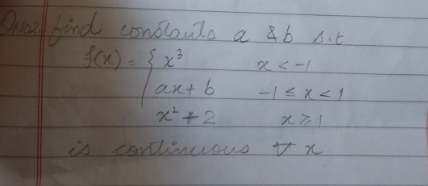 Ques find constants a & b s.t
f(x) = { x³ x < -1
ax + b -1 ≤ x < 1
x² + 2 x ≥ 1
is continuous ∀ x.